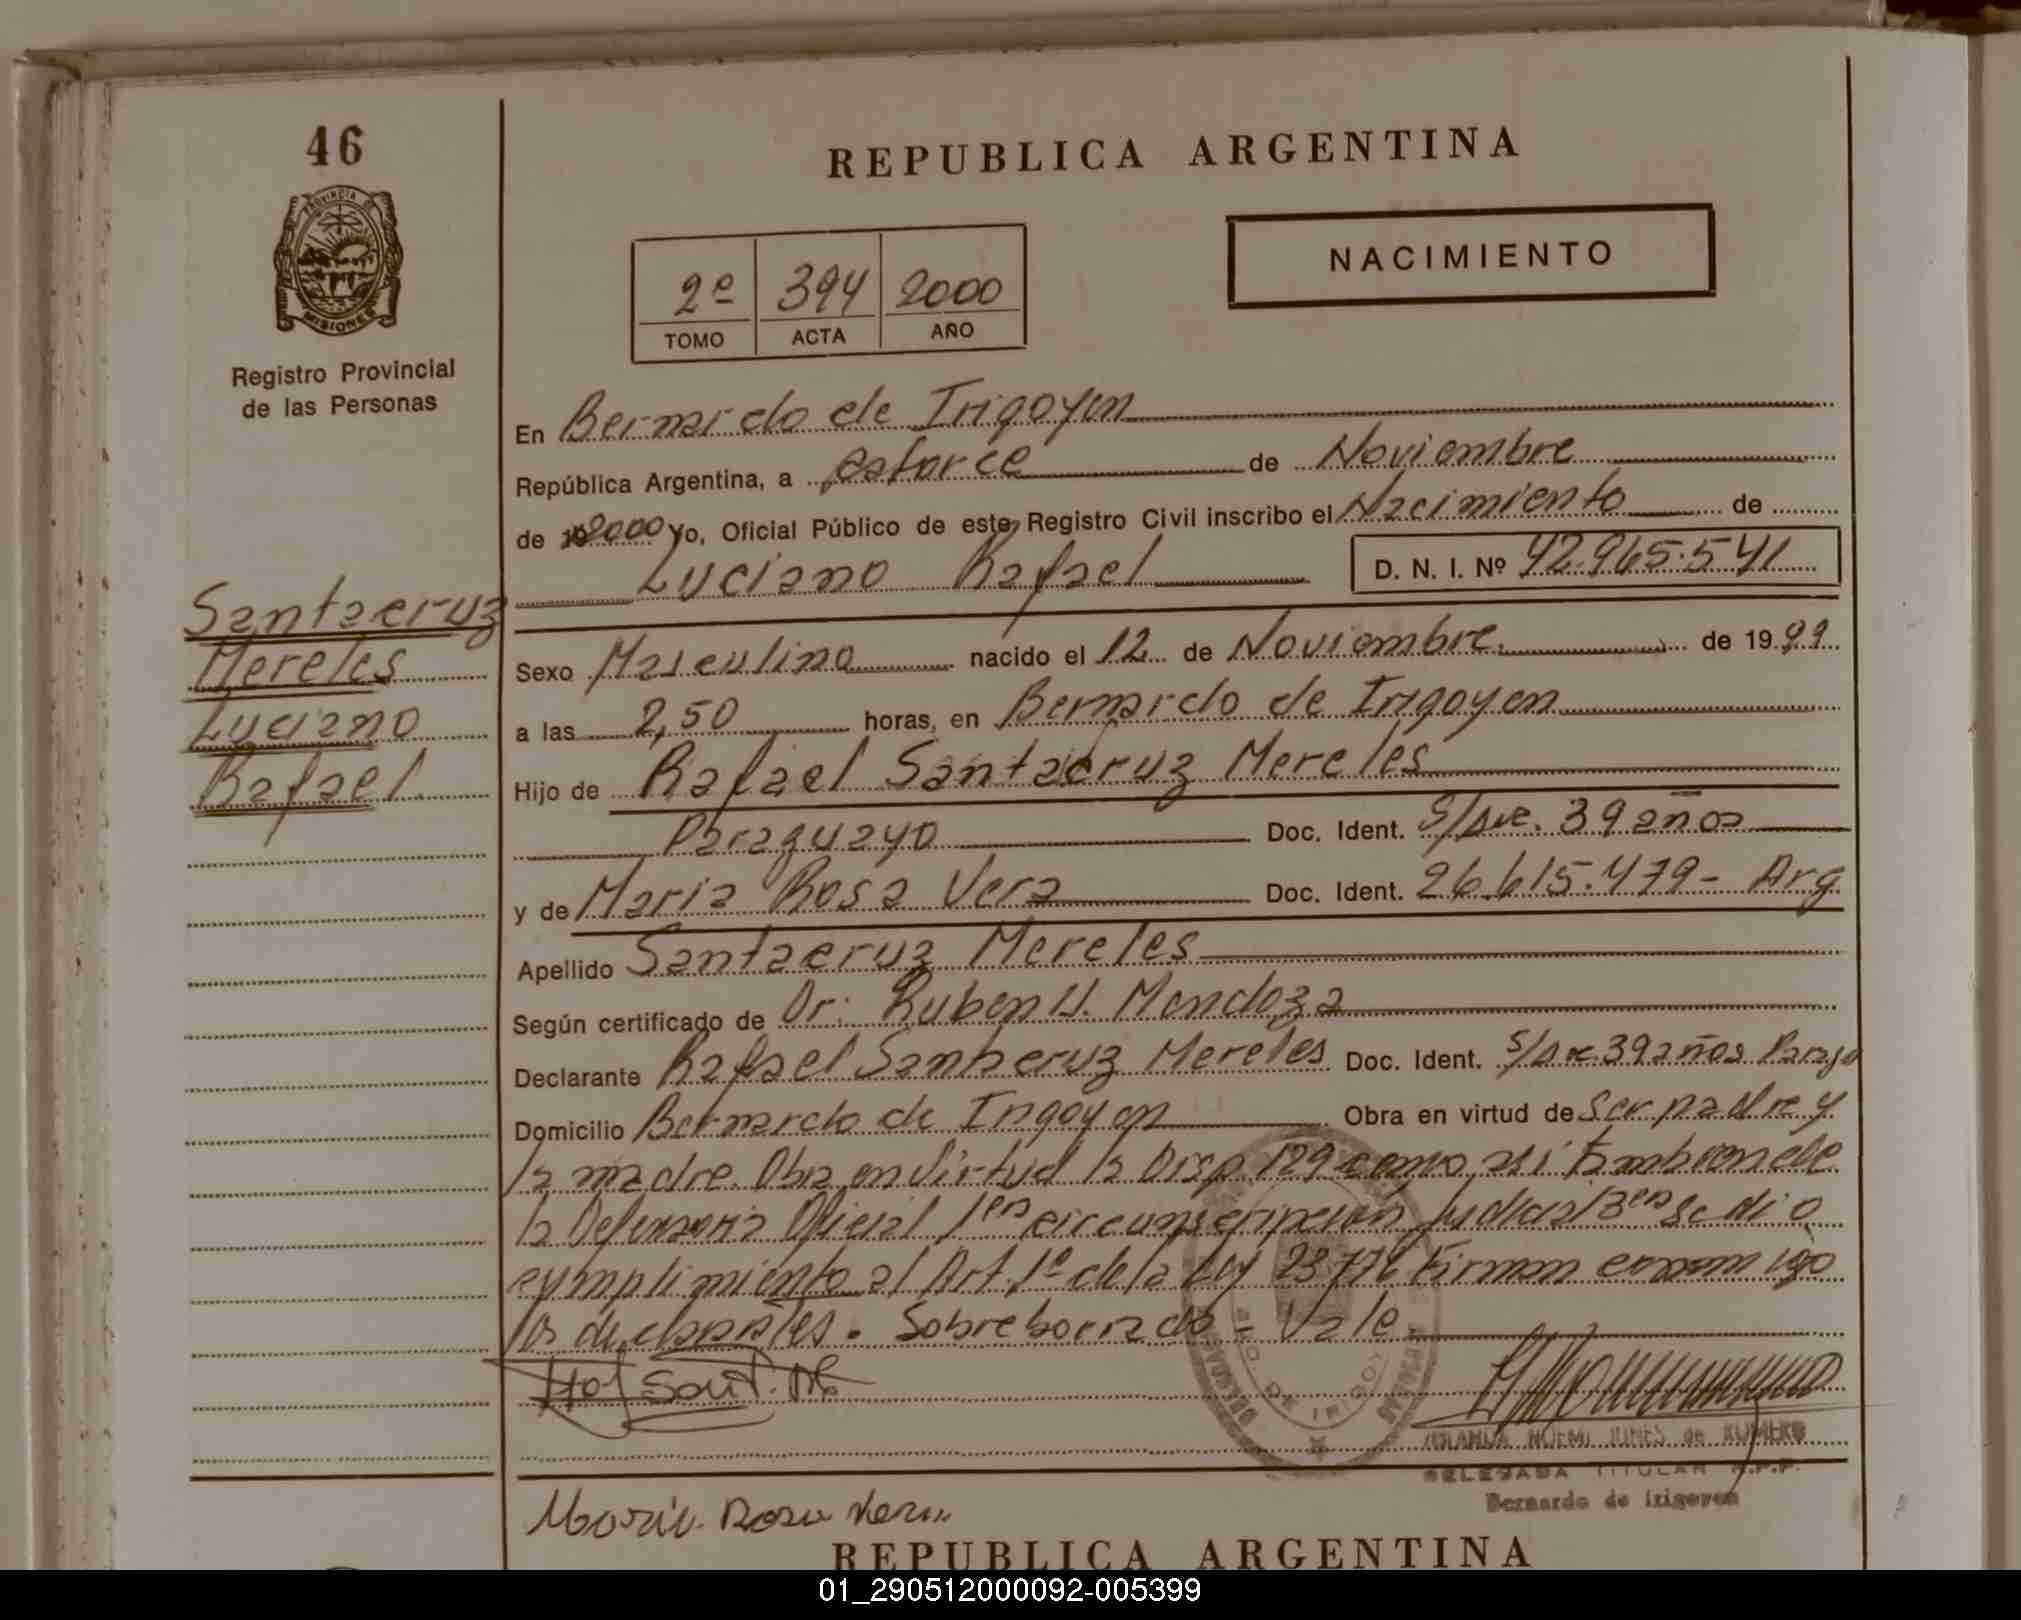 46
REPUBLICA ARGENTINA
PROVINCIA DE
MISIONES
Registro Provincial
de las Personas
NACIMIENTO
2º 394 2000
TOMO ACTA AÑO
En Bernardo de Irigoyen
República Argentina, a catorce de Noviembre
de 2000 Yo, Oficial Público de este Registro Civil inscribo el Nacimiento de
Luciano Rafael D. N. I. Nº 42.965.541
Santacruz
Mereles
Luciano
Rafael.
Sexo Masculino nacido el 12 de Noviembre. de 1999
a las 2,50 horas, en Bernardo de Irigoyen
Hijo de Rafael Santacruz Mereles
Paraguayo Doc. Ident. 39 años
y de Maria Rosa Vera Doc. Ident. 26.615.479- Arg
Apellido Santacruz Mereles
Según certificado de Dr. Ruben H. Mendoza
Declarante Rafael Santacruz Mereles Doc. Ident. 39 años
Domicilio Bernardo de Irigoyen Obra en virtud de Ser padre y
la madre. Obra en virtud la Disp. 129 como asi tambien de
la Defensoria Oficial 1era circunscripcion Judicial 3era se dio
cumplimiento al Art. 1º de la Ley 23.776 Firman conmigo
los declarantes. Sobreborrado - Vale.
DE IRIGOY
YOLANDA NOEMI de ROMERO
DELEGADA TITULAR R.P.P.
Bernardo de Irigoyen
Maria Rosa Vera
REPUBLICA ARGENTINA
01_290512000092-005399